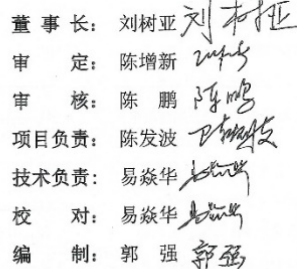 董事长：刘树亚 刘树亚
审定：陈增新
审核：陈鹏 陈鹏
项目负责：陈发波
技术负责：易焱华
校对：易焱华
编制：郭强 郭强